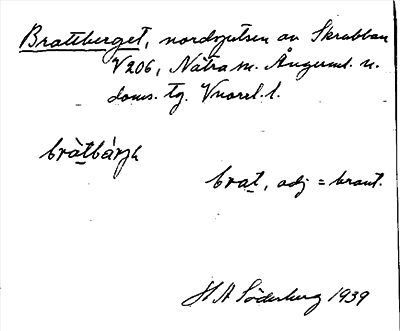 Brattberget, nordspetsen av Skrubban
V206, Nätra sn. Ångerml. n.
doms. tg. Vnorrl. l.
bràtbárjh
brat, adj = brant.
H A Söderberg 1939